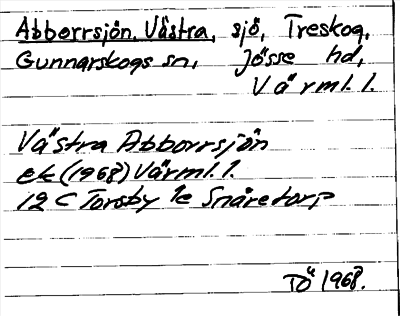 Abborrsjön, Västra, sjö, Treskog,
Gunnarskogs sn, Jösse hd,
Värml. l.
Västra Abborrsjön
ek (1968) Värml. l.
12 C Torsby 1e Snåretorp
TÖ 1968.